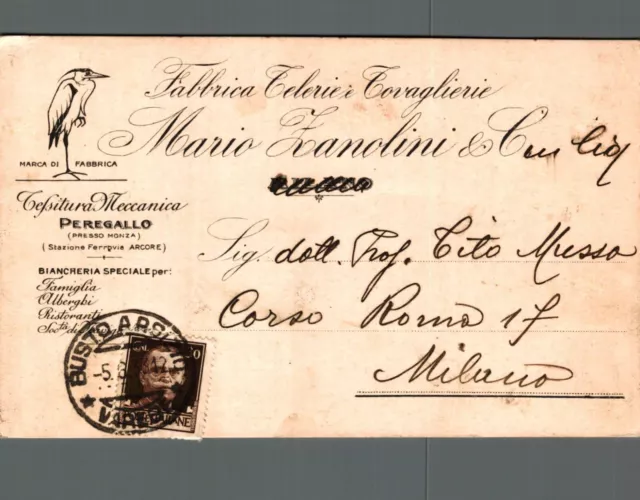 Fabbrica Telerie e Tovaglierie
Mario Zanolini & C in liq
MARCA DI FABBRICA
Tessitura Meccanica
PEREGALLO
(PRESSO MONZA)
(Stazione Ferrovia ARCORE)
BIANCHERIA SPECIALE per:
Famiglia
Alberghi
Ristoranti
Sig. dott. Prof. Tito Musso
Corso Roma 17
Milano
BUSTO ARSIZIO
VARESE